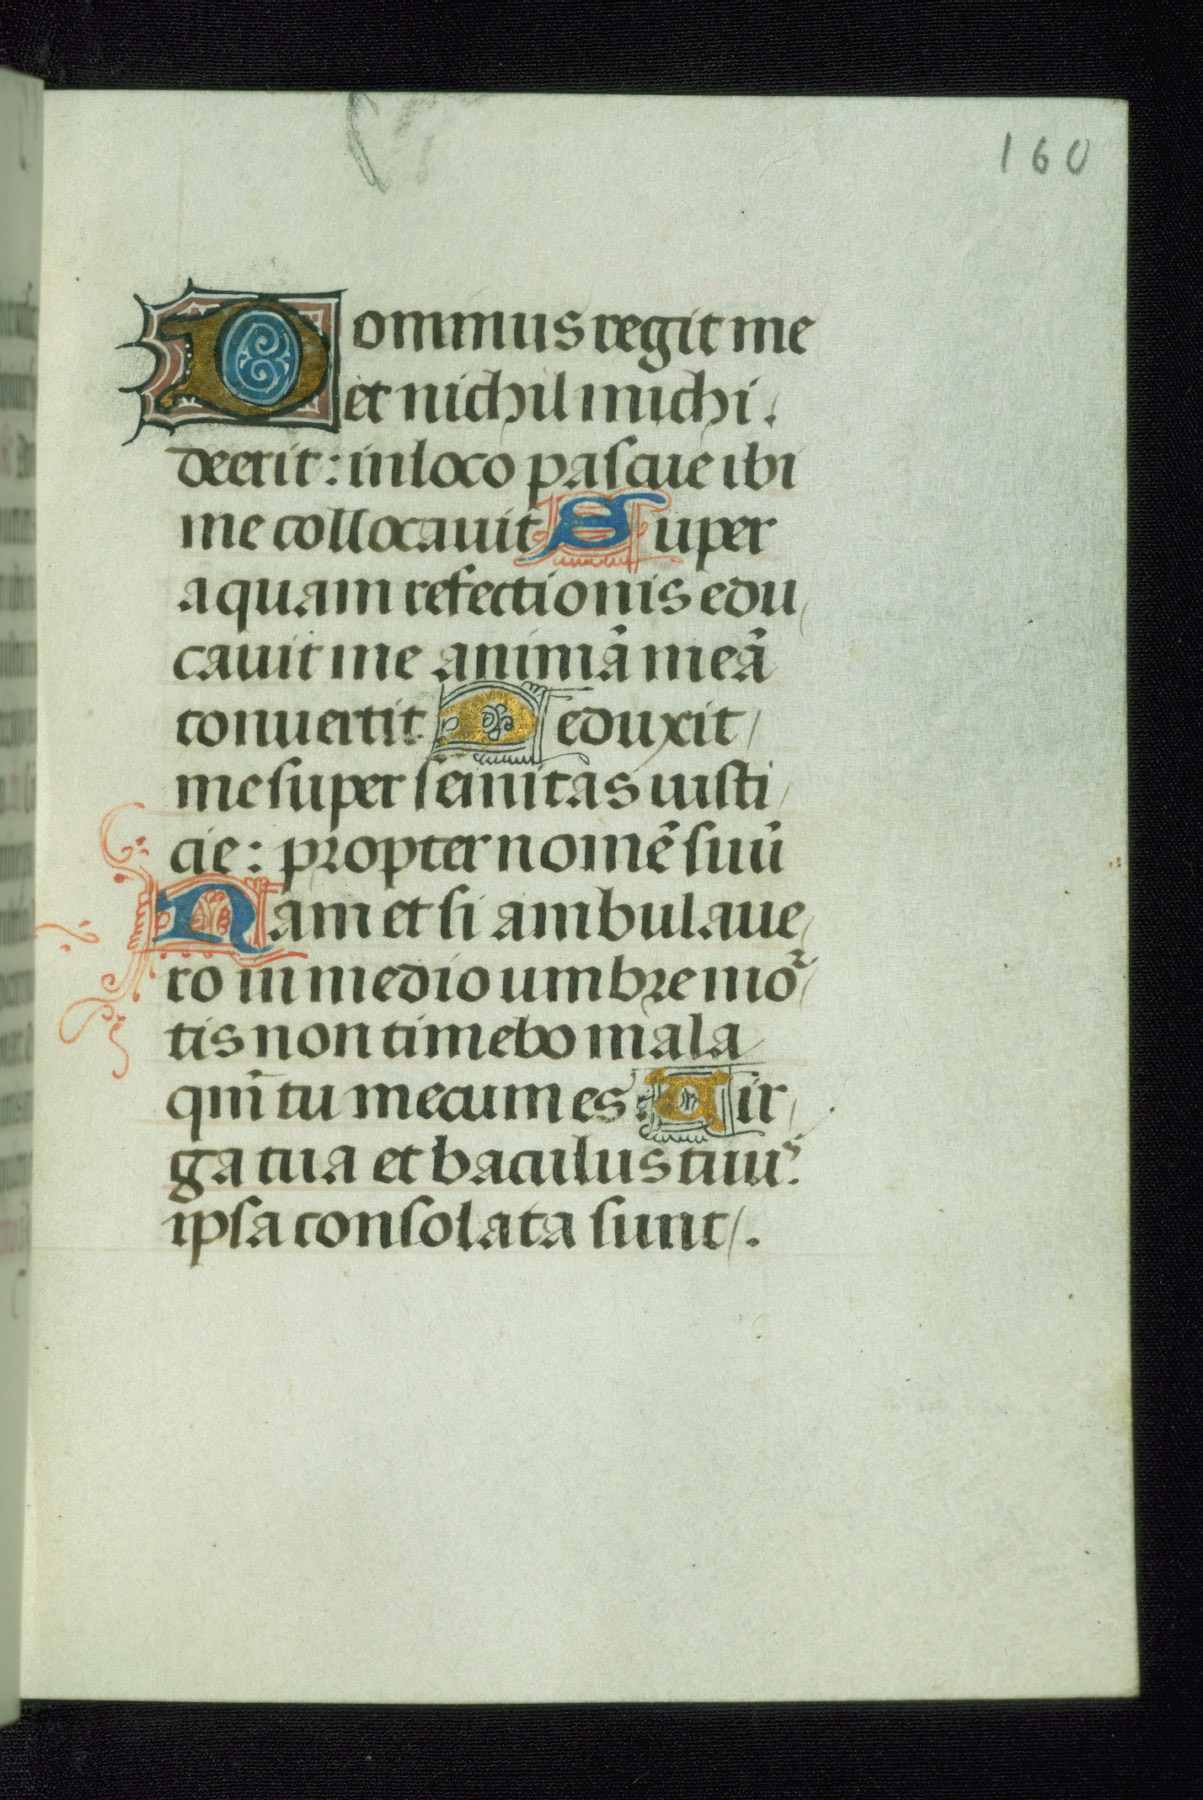 160
Dominus regit me
et nichil michi.
deerit: in loco pascue ibi
me collocauit Super
aquam refectionis edu
cauit me animā meā
conuertit Deduxit
me super semitas iusti
cie: propter nomē suū
Nam et si ambulaue
ro in medio umbre mor̄
tis non timebo mala
qm̄ tu mecum es Uir
ga tua et baculus tuus:
ipsa consolata sunt.